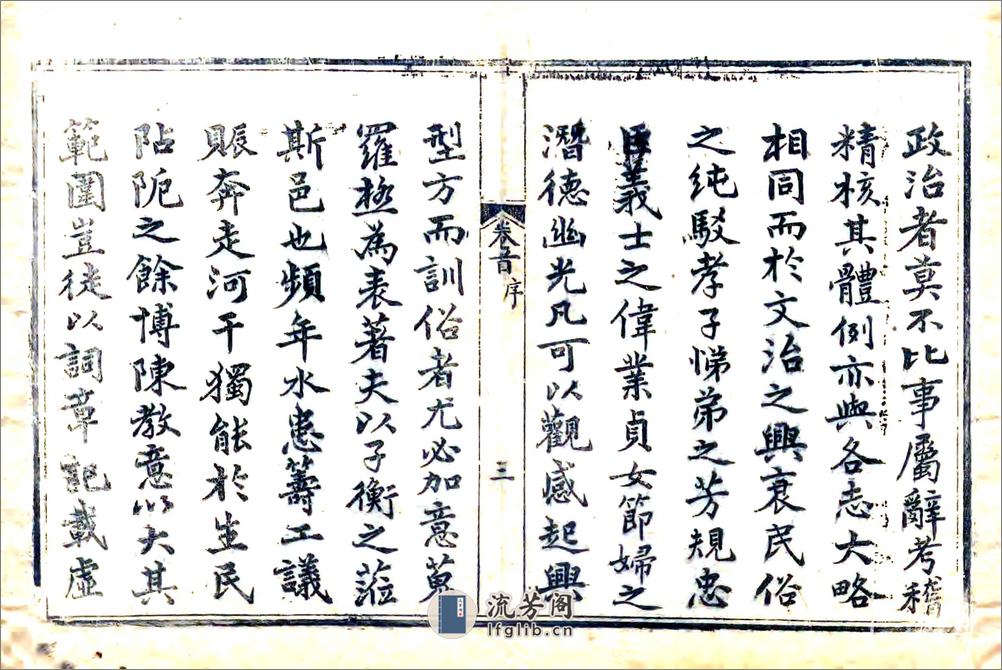 政治者莫不比事屬辭考稽
精核其體例亦與各志大略
相同而於文治之興衰民俗
之純駁孝子悌弟之芳規忠
臣義士之偉業貞女節婦之
潛德幽光凡可以觀感起興
卷首 序
三
型方而訓俗者尤必加意蒐
羅極為表著夫以子衡之蒞
斯邑也頻年水患籌工議
賑奔走河干獨能於生民
阽阨之餘博陳教意以大其
範圍豈徒以詞章記載虛
流芳阁
lfglib.cn